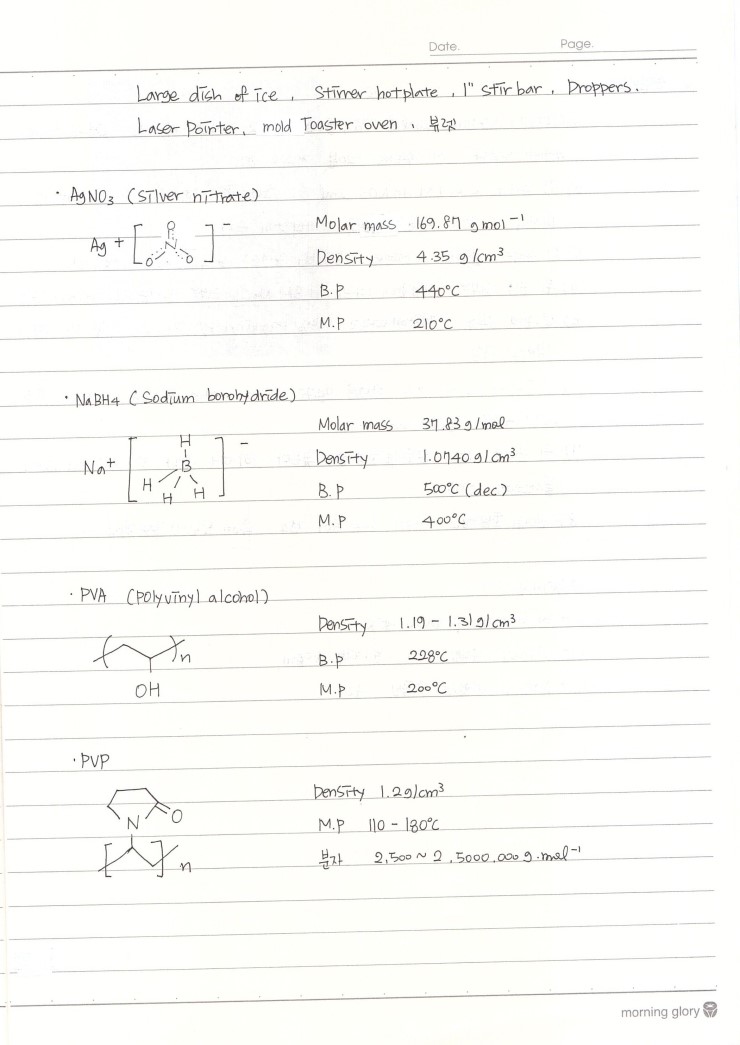 Date.
Page.
Large dish of ice, Stirrer hotplate, 1" stir bar, Droppers.
Laser Pointer, mold Toaster oven, 뷰렛
· AgNO3 (Silver nitrate)
Ag + [O N O O]⁻
Molar mass 169.87 g mol⁻¹
Density 4.35 g/cm³
B.P 440°C
M.P 210°C
· NaBH4 (Sodium borohydride)
Na⁺ [H B H H H]⁻
Molar mass 37.83 g/mol
Density 1.0740 g/cm³
B.P 500°C (dec)
M.P 400°C
· PVA (polyvinyl alcohol)
n
OH
Density 1.19 - 1.31 g/cm³
B.p 228°C
M.p 200°C
· PVP
N O
n
Density 1.2g/cm³
M.p 110 - 180°C
분자 2,500 ~ 2,5000,000 g·mol⁻¹
morning glory